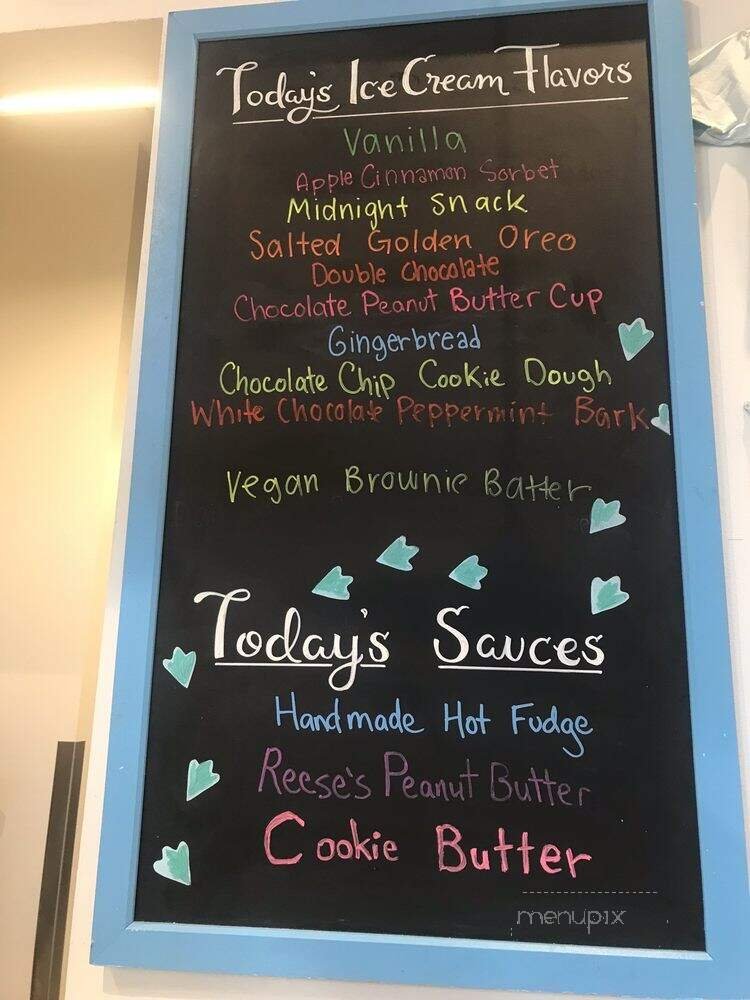 Today's Ice Cream Flavors
Vanilla
Apple Cinnamon Sorbet
Midnight Snack
Salted Golden Oreo
Double Chocolate
Chocolate Peanut Butter Cup
Gingerbread
Chocolate Chip Cookie Dough
White Chocolate Peppermint Bark
Vegan Brownie Batter
Today's Sauces
Handmade Hot Fudge
Reese's Peanut Butter
Cookie Butter
menupix